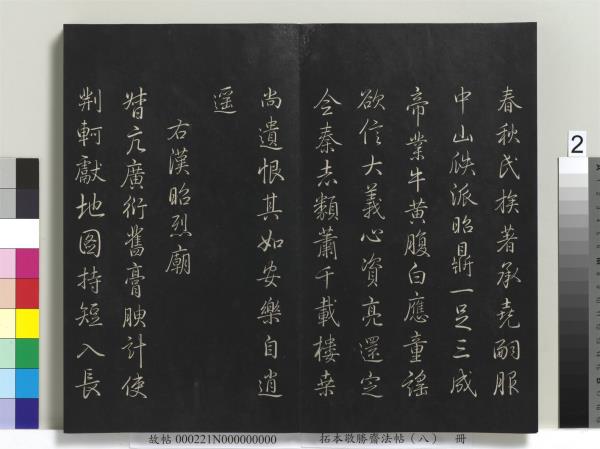 春秋氏族著承堯嗣服
中山縣派昭鼎一足三成
帝業牛黃腹白應童謠
欲信大義心資亮還定
令秦志類蕭千載樓桑
尚遺恨其如安樂自逍
遥
右漢昭烈廟
督亢廣衍舊膏腴計使
荆軻獻地圖持短入長
2
故帖 000221N000000000
拓本敬勝齋法帖（八） 冊